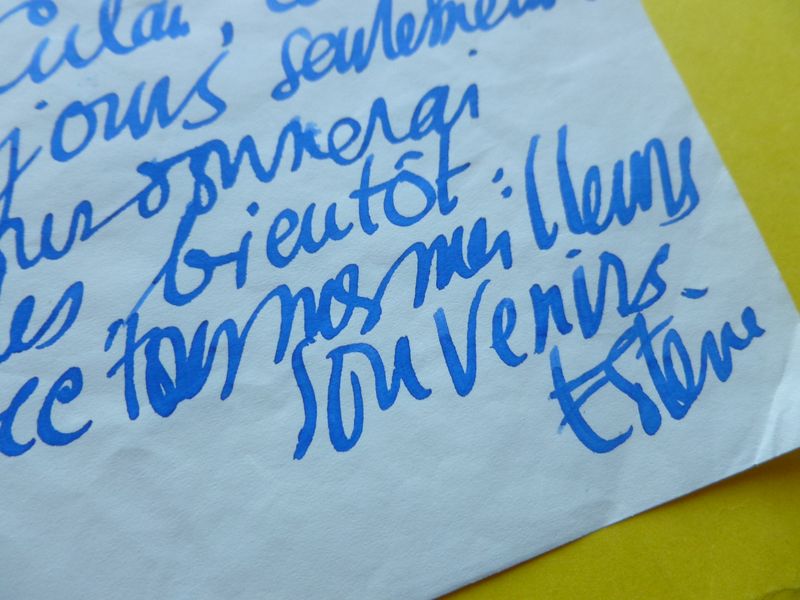 jours seulement
donnerai
bientôt :
tous nos meilleurs
souvenirs.
Estève